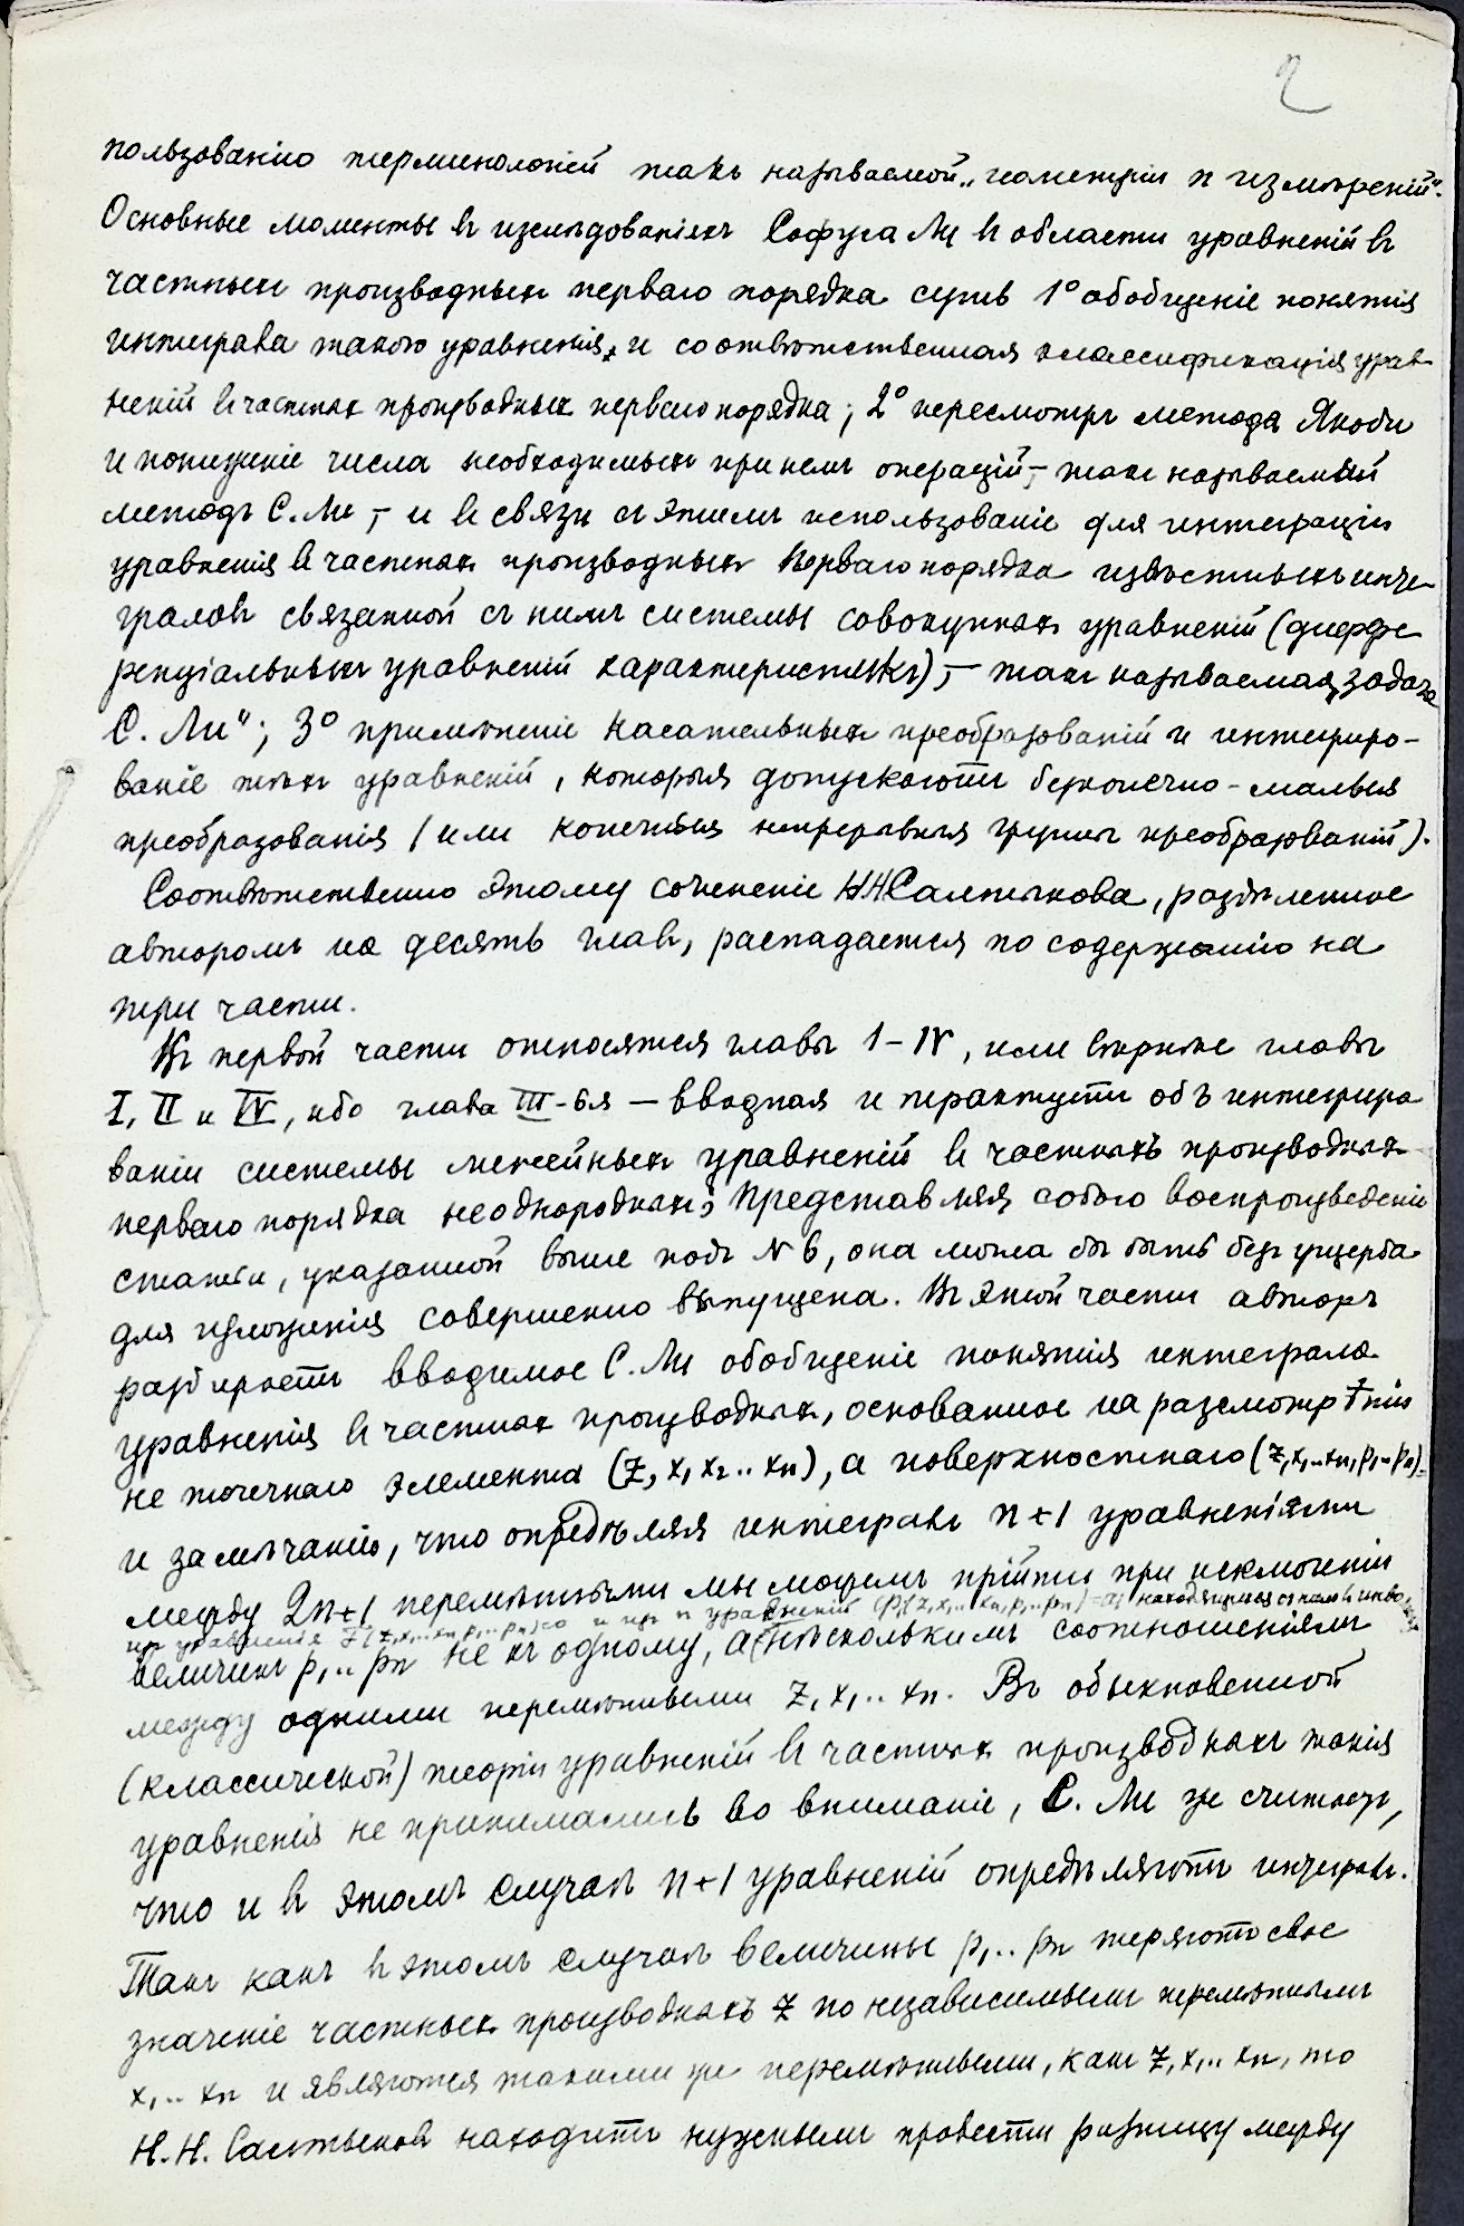 2
пользованію терминологіей такъ называемой „геометріи n измѣреній“.
Основные моменты въ изслѣдованіяхъ Софуса Ли въ области уравненій въ
частныхъ производныхъ перваго порядка суть 1° обобщеніе понятія
интеграла такого уравненія, и соотвѣтственная классификація урав-
неній въ частныхъ производныхъ перваго порядка; 2° пересмотръ метода Якоби
и пониженіе числа необходимыхъ при немъ операцій, – такъ называемый
методъ С. Ли, – и въ связи съ этимъ использованіе для интеграціи
уравненія въ частныхъ производныхъ перваго порядка извѣстныхъ инте-
граловъ связанной съ нимъ системы совокупныхъ уравненій (диффе-
ренціальныхъ уравненій характеристикъ), – такъ называемая „задача
С. Ли“; 3° примѣненіе касательныхъ преобразованій и интегриро-
ваніе тѣхъ уравненій, которыя допускаютъ безконечно-малыя
преобразованія (или конечныя непрерывныя группы преобразованій).
Соотвѣтственно этому сочиненіе Н.Н. Салтыкова, раздѣленное
авторомъ на десять главъ, распадается по содержанію на
три части.
Къ первой части относятся главы I–IV, или вѣрнѣе главы
I, II и IV, ибо глава III-ья — вводная и трактуетъ объ интегриро
ваніи системы линейныхъ уравненій въ частныхъ производныхъ
перваго порядка неоднородныхъ; представляя собою воспроизведеніе
статьи, указанной выше подъ N 6, она могла бы быть безъ ущерба
для изложенія совершенно выпущена. Въ этой части авторъ
разбираетъ вводимое С. Ли обобщеніе понятія интеграла
уравненія въ частныхъ производныхъ, основанное на разсмотрѣніи
не точечнаго элемента (z, x₁ x₂ .. xn), а поверхностнаго (z, x₁ .. xn, p₁ .. pn)
и замѣчаніи, что опредѣляя интегралъ n+1 уравненіями
между 2n+1 перемѣнными мы можемъ прійти при исключеніи
изъ уравненія F(z, x₁ ... xn, p₁ ... pn)=0 и изъ n уравненій находящихся съ нимъ въ инво
величинъ p₁ .. pn не къ одному, а нѣсколькимъ соотношеніямъ
между одними перемѣнными z, x₁ .. xn. Въ обыкновенной
(классической) теоріи уравненій въ частныхъ производныхъ такія
уравненія не принимались во вниманіе, С. Ли же считаетъ,
что и въ этомъ случаѣ n+1 уравненій опредѣляютъ интегралъ.
Такъ какъ въ этомъ случаѣ величины p₁ .. pn теряютъ свое
значеніе частныхъ производныхъ z по независимымъ перемѣннымъ
x₁ .. xn и являются такими же перемѣнными, какъ z, x₁ .. xn, то
Н. Н. Салтыковъ находитъ нужнымъ провести разницу между